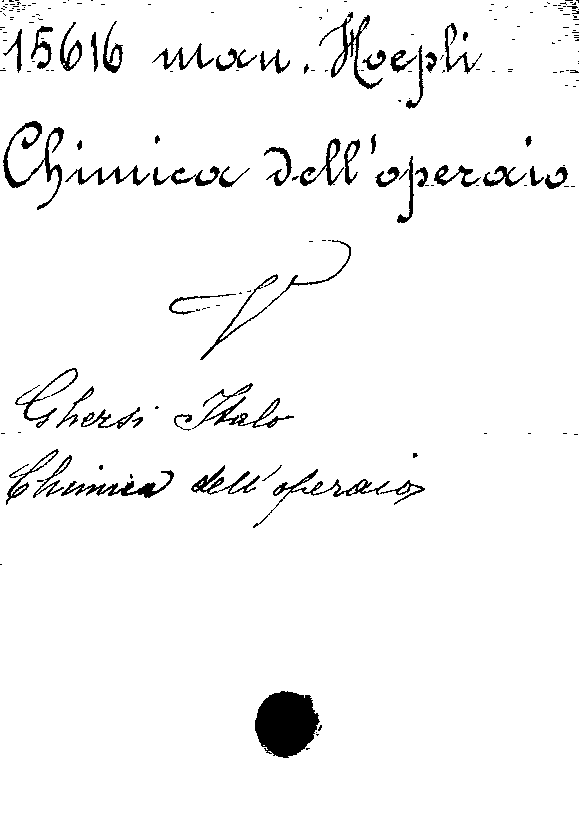 15616 man. Hoepli
Chimica dell'operaio
V
Ghersi Italo
Chimica dell'operaio